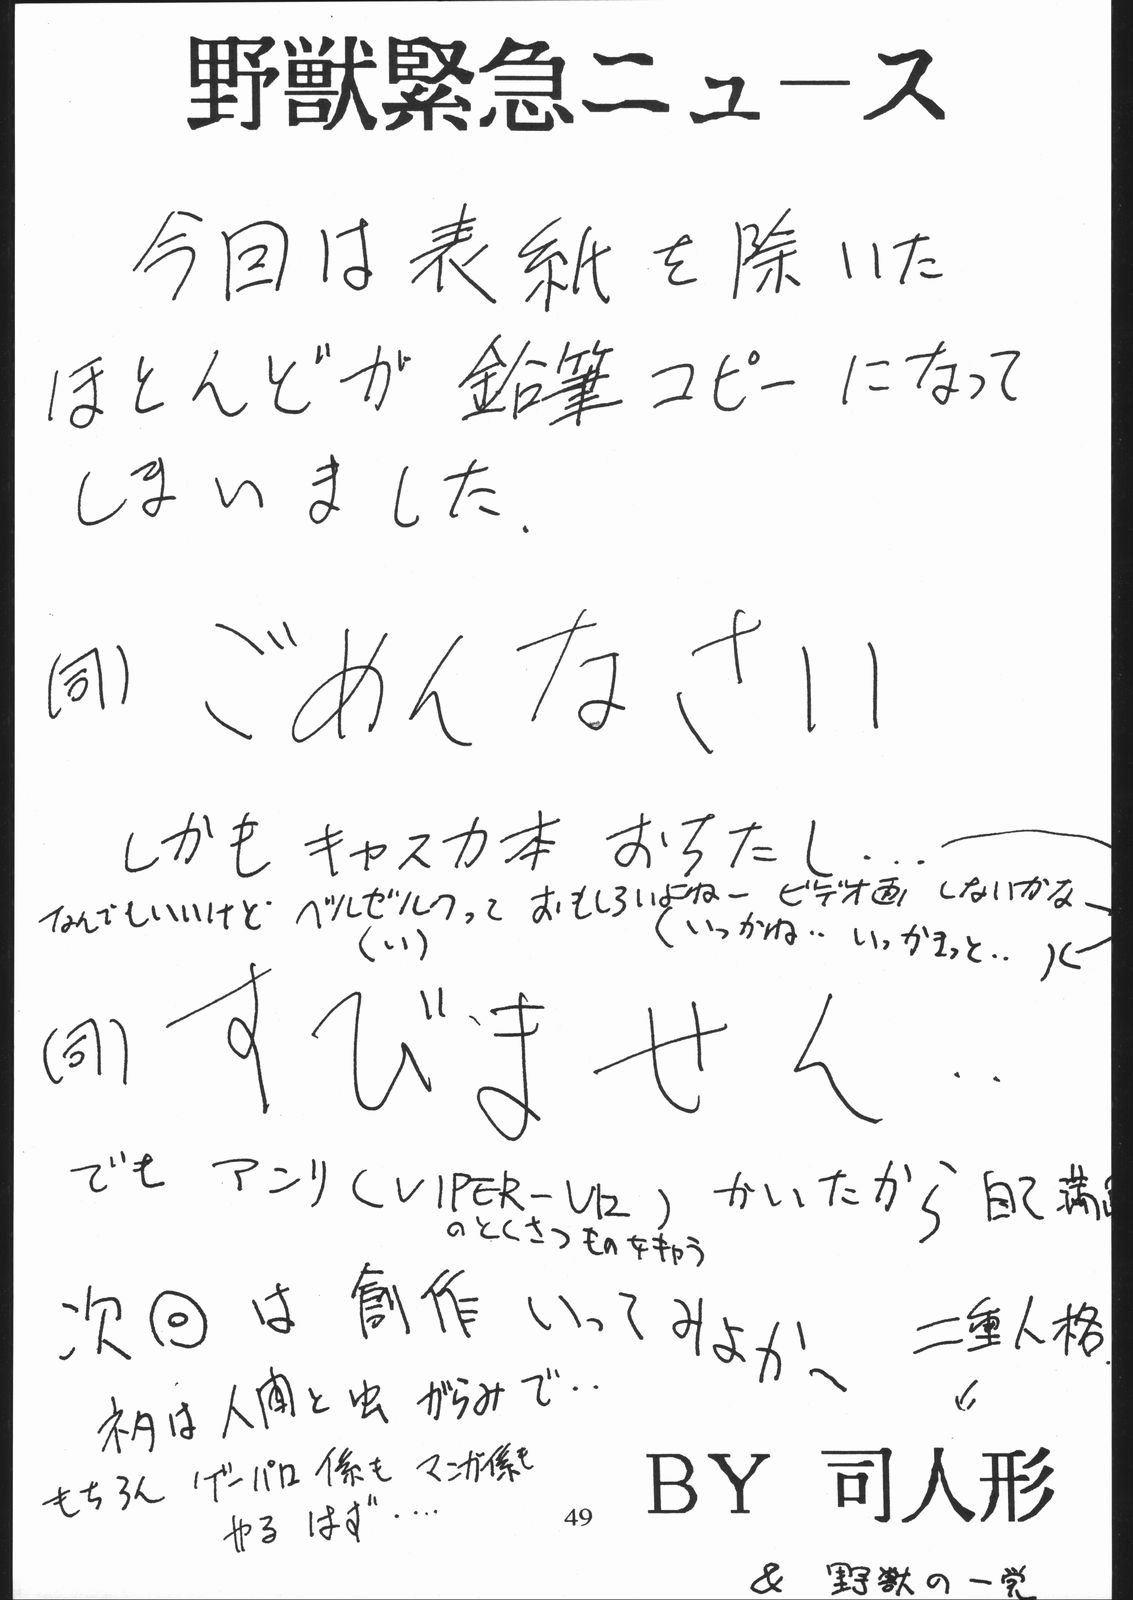 野獣緊急ニュース
今回は表紙を除いた
ほとんどが鉛筆コピーになって
しまいました.
(司) ごめんなさい
しかもキャスカ本おちたし...
なんでもいいけどベルゼルクっておもしろいよねー ビデオ画しないかな
(い) (いっかね‥ いっかまっと‥
(司) すびません‥
でもアンリ(VIPER-V12)かいたから自己満足
のとくさつものをキャラ
次回は創作いってみよか〜 二重人格.
初は人間と虫がらみで‥
もちろんゲーパロ係もマンガ係も
やるはず‥‥
BY 司人形
49
& 野獣の一党